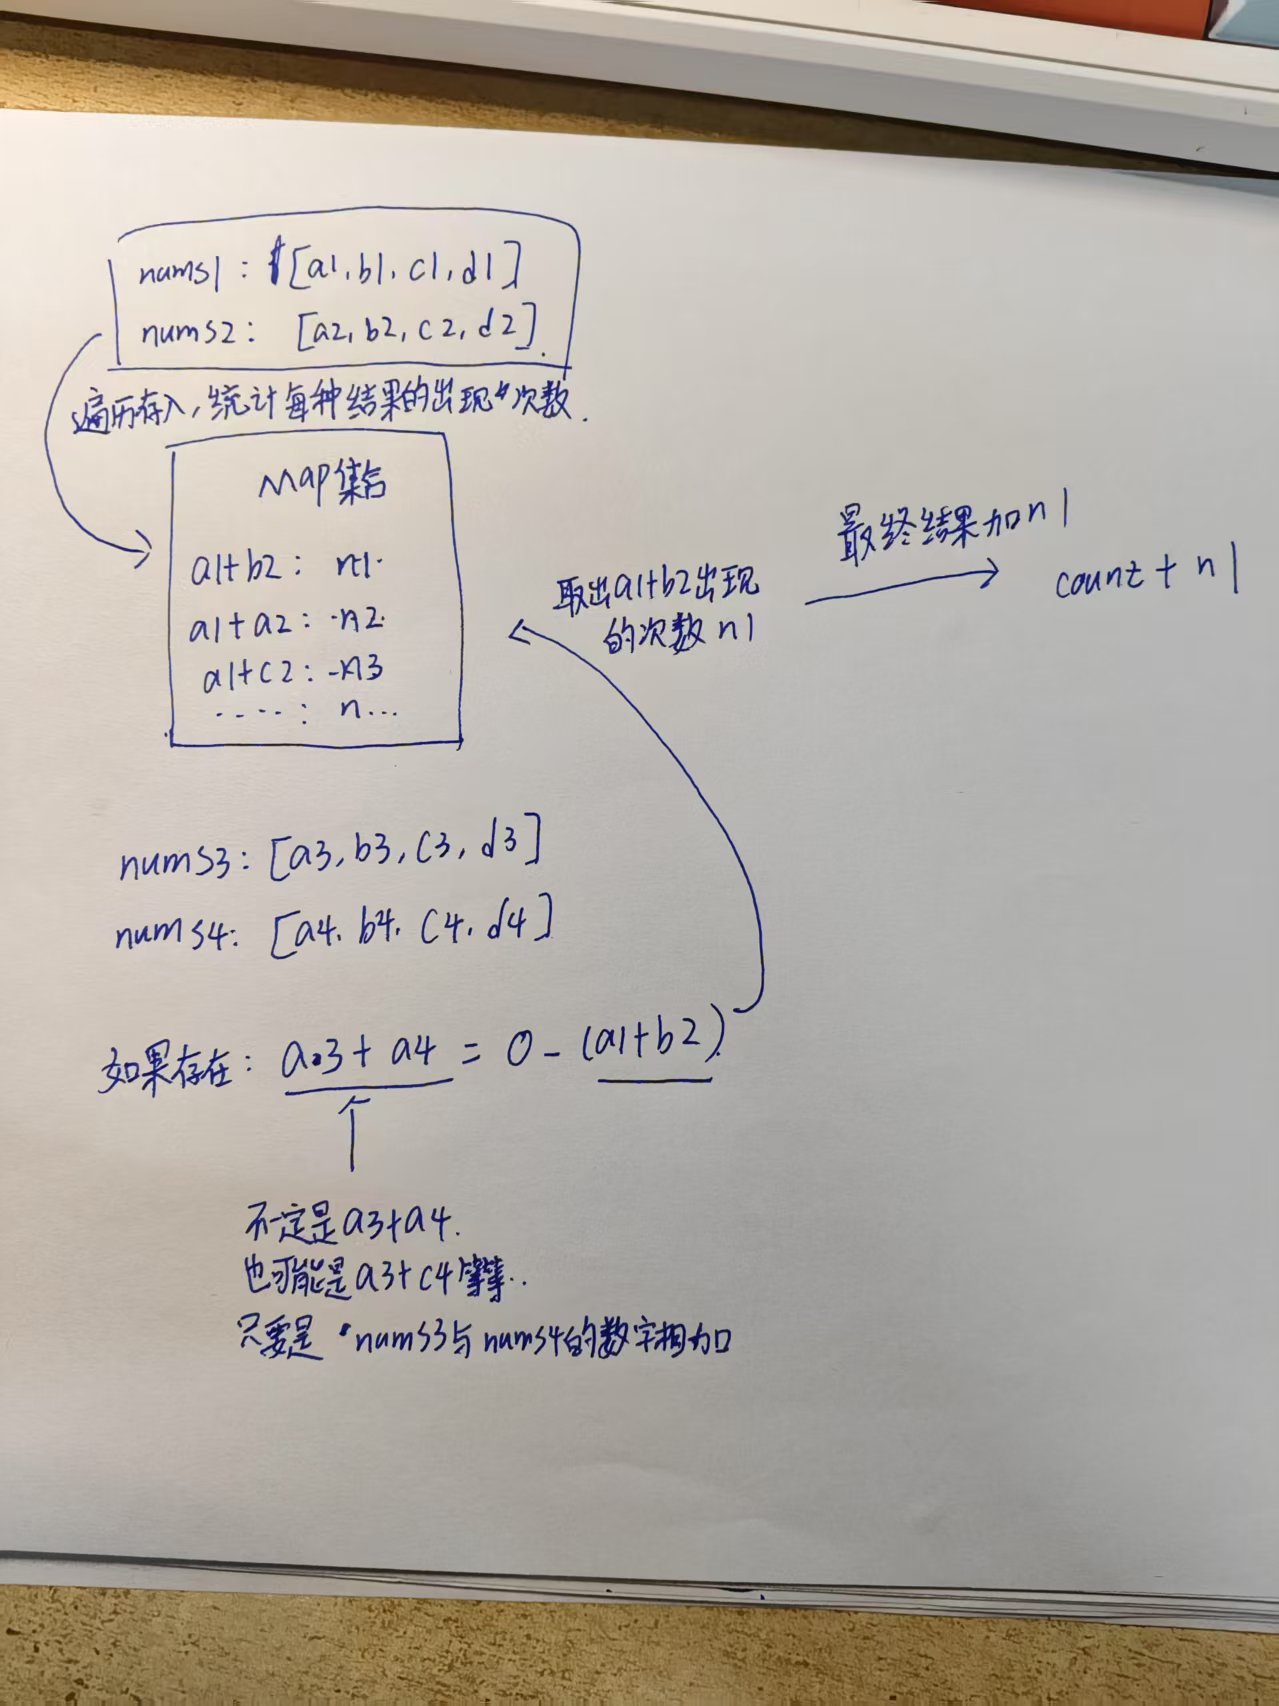 nums1: [a1, b1, c1, d1]
nums2: [a2, b2, c2, d2].
遍历存入,统计每种结果的出现次数.
Map集合
a1+b2: n1.
a1+a2: n2.
a1+c2: n3
....: n...
取出a1+b2出现
的次数n1
最终结果加n1
count + n1
nums3: [a3, b3, c3, d3]
nums4: [a4, b4, c4, d4]
如果存在: a3+a4 = 0-(a1+b2)
不一定是a3+a4.
也可能是a3+c4等等..
只要是nums3与nums4的数字相加